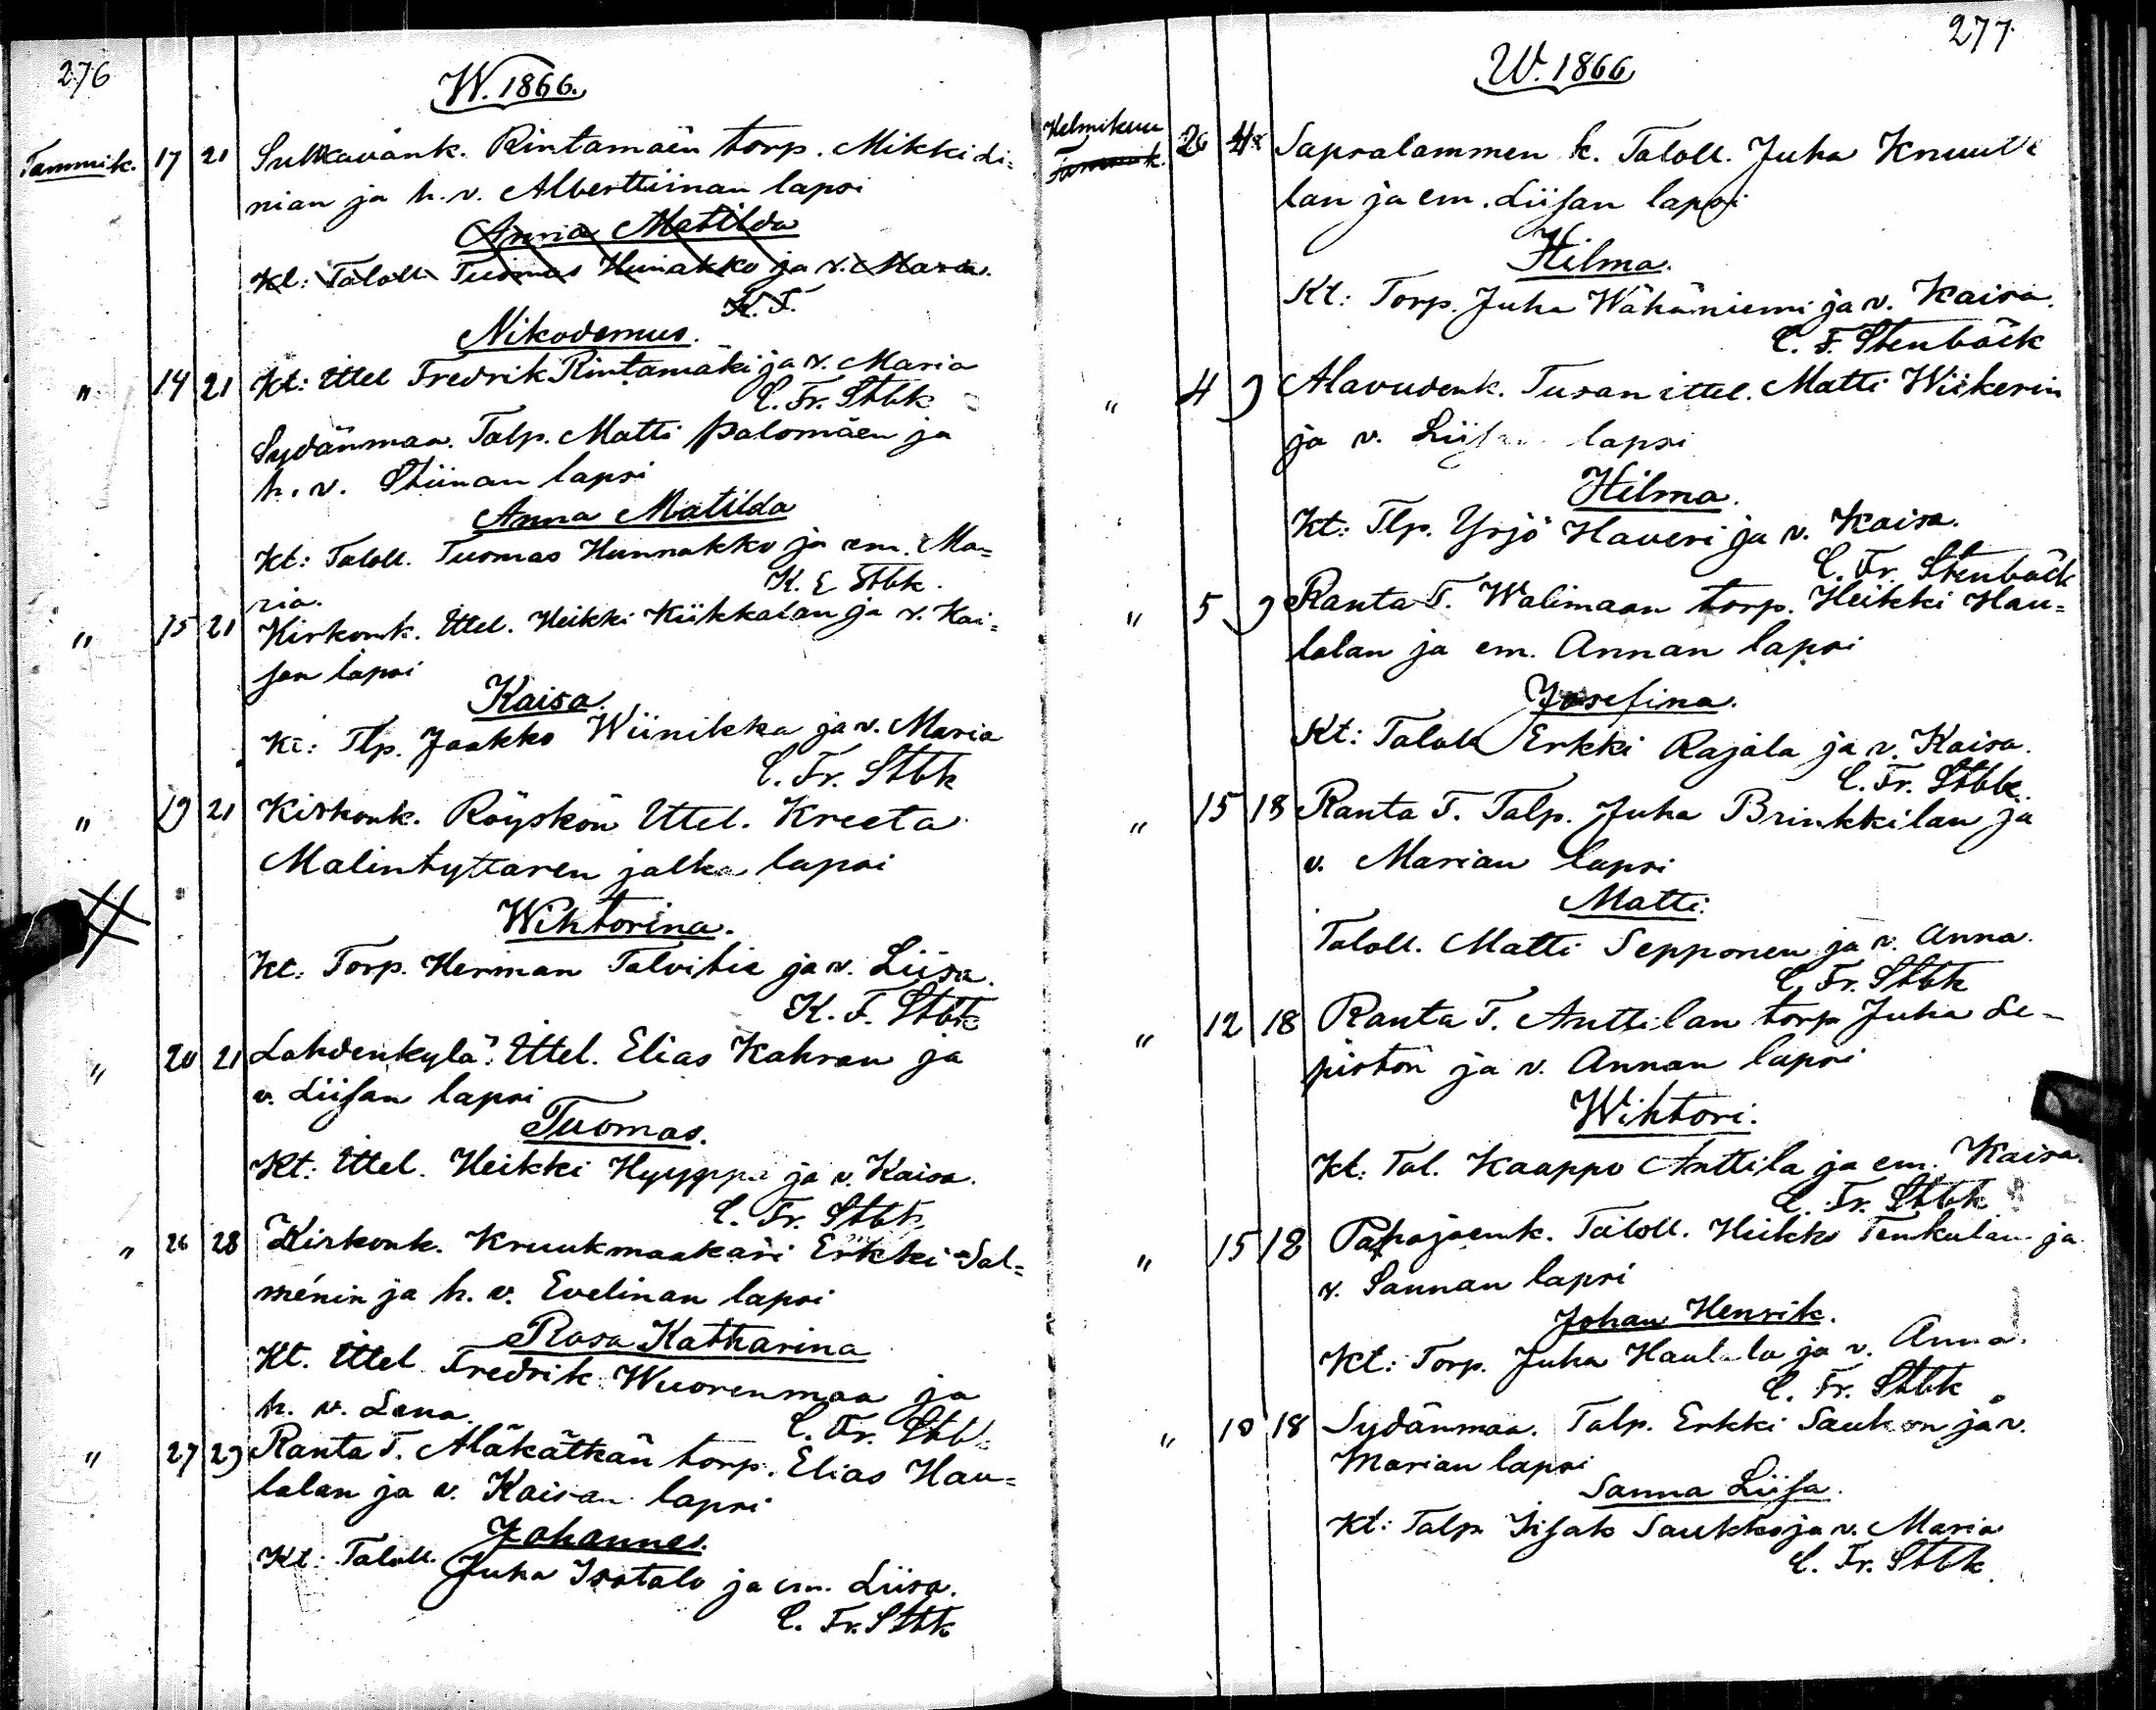 276
W. 1866.
Tammik. 17 21 Sulkavank. Rintamäen torp. Mikki Li=
nian ja h. v. Alberttiinan lapsi
Anna Matilda
Kt: Taloll. Tuomas Hunnakko ja v. Maria.
K. F.
Nikodemus.
Kt: Ittel Fredrik Rintamäki ja v. Maria
C. Fr. Stbk
" 14 21 Sydänmaa. Talp. Matti Palomäen ja
h. v. Stiinan lapsi
Anna Matilda
Kt: Taloll. Tuomas Hunnakko ja em. Ma=
ria.
K. E Stbk.
" 15 21 Kirkonk. Ittel. Heikki Kiikkalan ja v. Kai=
san lapsi
Kaisa.
Kt: Tlp. Jaakko Wiinikka ja v. Maria
C. Fr. Stbk
" 19 21 Kirkonk. Röyskön Ittel. Kreeta
Malintyttären jalka lapsi
Wihtorina.
Kt: Torp. Herman Talvitie ja v. Liisa.
K. F. Stbk
" 20 21 Lahdenkylä. Ittel. Elias Kahran ja
v. Liisan lapsi
Tuomas.
Kt: Ittel. Heikki Hyyppä ja v. Kaisa.
C. Fr. Stbk
" 26 28 Kirkonk. Kruukmaakari Erkki Sal=
ménin ja h. v. Evelinan lapsi
Rosa Katharina
Kt. Ittel Fredrik Wuorenmaa ja
h. v. Lena.
C. Fr. Stbk
" 27 29 Ranta T. Aläkätkän torp. Elias Hau=
lalan ja v. Kaisan lapsi
Johannes.
Kt: Taloll. Juha Isotalo ja em. Liisa.
C. Fr. Stbk
277.
W. 1866
Helmikuu
Tammik. 26 4 Sapsalammen k. Taloll. Juha Knuuti
lan ja em. Liisan lapsi
Hilma.
Kt: Torp. Juha Wähäniemi ja v. Kaisa.
C. F. Stenbäck
" 4 9 Alavudenk. Tusan ittel. Matti Wiikerin
ja v. Liisan lapsi
Hilma.
Kt: Tlp. Yrjö Haveri ja v. Kaisa.
C. Fr. Stenbäck
" 5 9 Ranta T. Walimaan torp. Heikki Hau=
lalan ja em. Annan lapsi
Josefina.
Kt: Taloll Erkki Rajala ja v. Kaisa.
C. Fr. Stbk.
" 15 18 Ranta T. Talp. Juha Brinkkilan ja
v. Marian lapsi
Matti.
Taloll. Matti Sepponen ja v. Anna.
C. Fr. Stbk
" 12 18 Ranta T. Anttilan torp Juha Le-
pistön ja v. Annan lapsi
Wihtori.
Kt: Tal. Kaappo Anttila ja em. Kaisa.
C. Fr. Stbk
" 15 18 Pahajoenk. Taloll. Heikki Tenkulan ja
v. Sannan lapsi
Johan Henrik.
Kt: Torp. Juha Haulala ja v. Anna.
C. Fr. Stbk
" 10 18 Sydänmaa. Talp. Erkki Saukon ja v.
Marian lapsi
Sanna Liisa.
Kt: Talp Iisak Saukko ja v. Maria
C. Fr. Stbk.